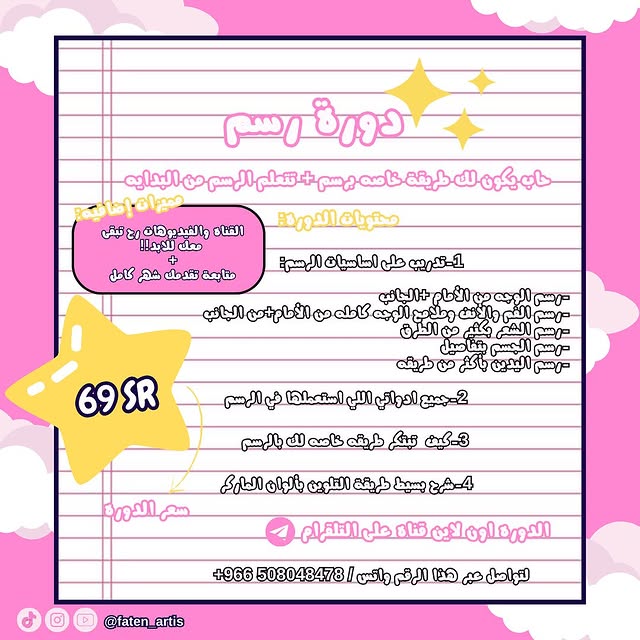 دورة رسم
حاب يكون لك طريقة خاصه برسم + تتعلم الرسم من البدايه
مميزات إضافيه:
القناة والفيديوهات رح تبقى
معك للابد!!
+
متابعة تقدمك شهر كامل
محتويات الدورة:
1-تدريب على اساسيات الرسم:
-رسم الوجه من الأمام +الجانب
-رسم الفم والأنف وملامح الوجه كامله من الأمام+من الجانب
-رسم الشعر بكثير من الطرق
-رسم الجسم بتفاصيل
-رسم اليدين بأكثر من طريقه
69 SR
2-جميع ادواتي اللي استعملها في الرسم
3-كيف تبتكر طريقه خاصه لك بالرسم
4-شرح بسيط طريقة التلوين بألوان الماركر
سعر الدوره
الدوره اون لاين قناه على التلقرام
لتواصل عبر هذا الرقم واتس / 508048478 966+
@faten_artis